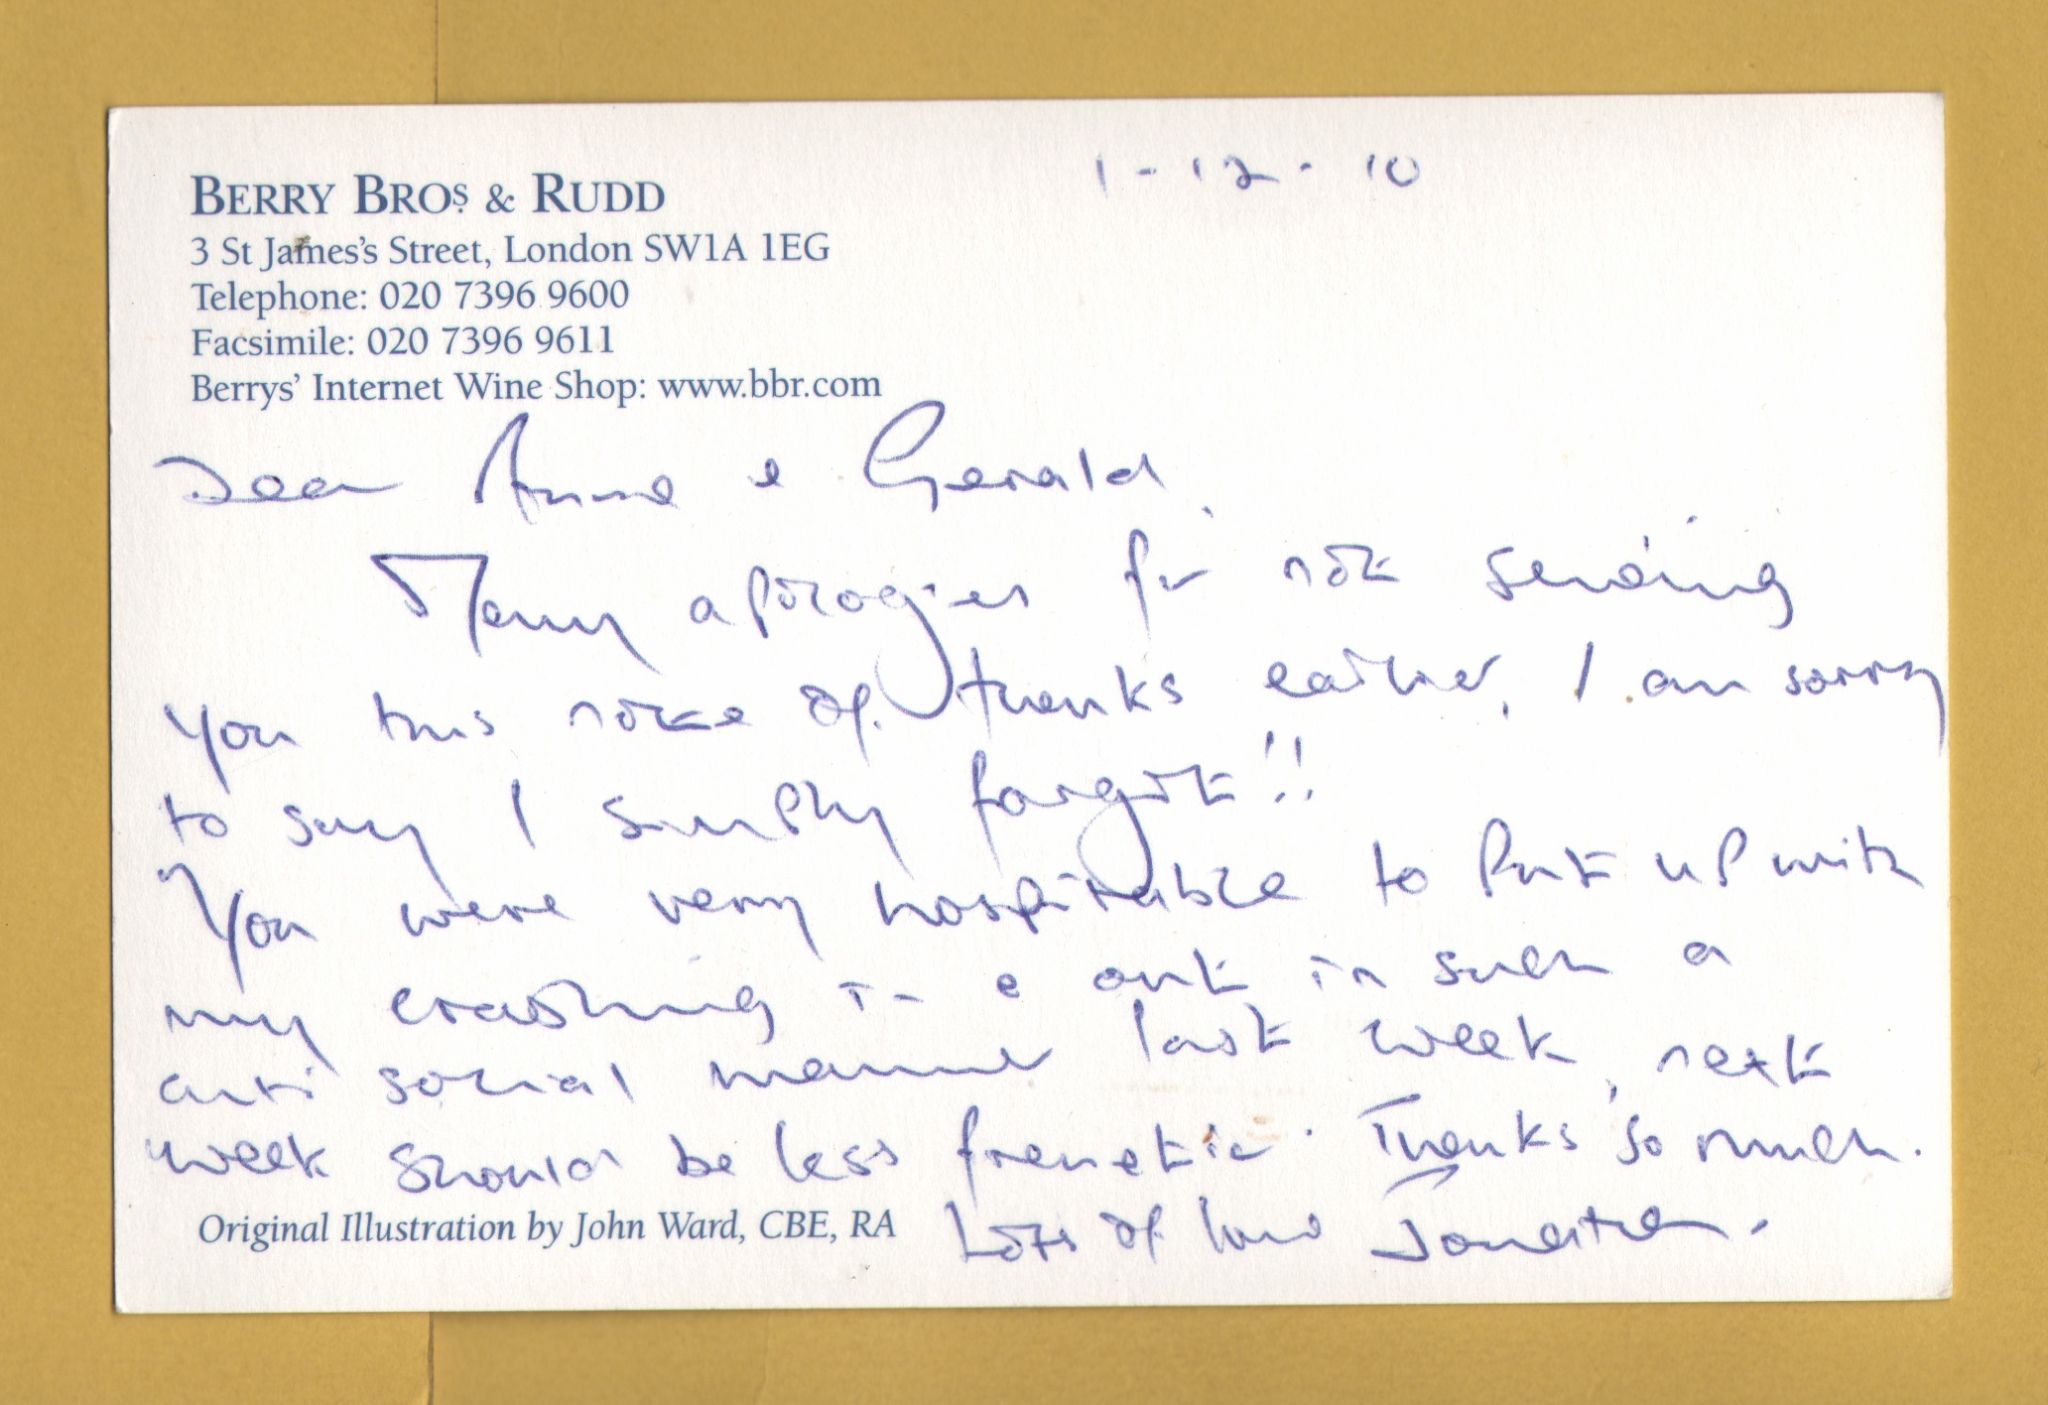 BERRY BROS & RUDD
1-12-10
3 St James's Street, London SW1A 1EG
Telephone: 020 7396 9600
Facsimile: 020 7396 9611
Berrys' Internet Wine Shop: www.bbr.com
Dear Anne & Gerald,
Many apologies for not sending
you this note of thanks earlier, I am sorry
to say I simply forgot!!
You were very hospitable to put up with
my crashing in & out in such a
anti social manner last week, next
week should be less frenetic. Thanks so much.
Original Illustration by John Ward, CBE, RA
Lots of love Jonathan.